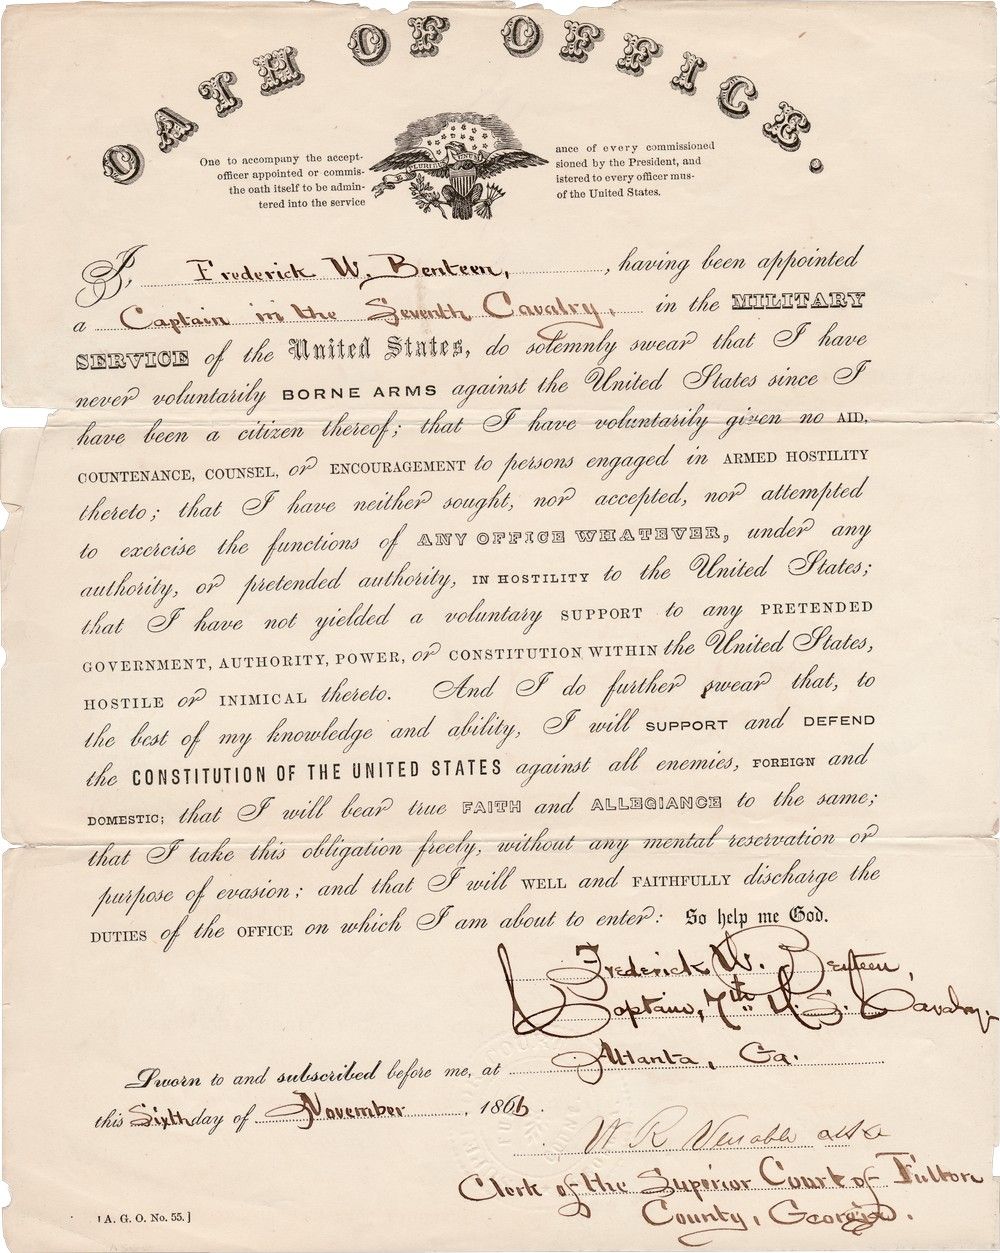 OATH OF OFFICE.
One to accompany the accept-
officer appointed or commis-
the oath itself to be admin-
tered into the service
ance of every commissioned
sioned by the President, and
istered to every officer mus-
of the United States.
I, Frederick W. Benteen, , having been appointed
a Captain in the Seventh Cavalry, in the MILITARY
SERVICE of the United States, do solemnly swear that I have
never voluntarily BORNE ARMS against the United States since I
have been a citizen thereof; that I have voluntarily given no AID,
COUNTENANCE, COUNSEL, or ENCOURAGEMENT to persons engaged in ARMED HOSTILITY
thereto; that I have neither sought, nor accepted, nor attempted
to exercise the functions of ANY OFFICE WHATEVER, under any
authority, or pretended authority, IN HOSTILITY to the United States;
that I have not yielded a voluntary SUPPORT to any PRETENDED
GOVERNMENT, AUTHORITY, POWER, or CONSTITUTION WITHIN the United States,
HOSTILE or INIMICAL thereto. And I do further swear that, to
the best of my knowledge and ability, I will SUPPORT and DEFEND
the CONSTITUTION OF THE UNITED STATES against all enemies, FOREIGN and
DOMESTIC; that I will bear true FAITH and ALLEGIANCE to the same;
that I take this obligation freely, without any mental reservation or
purpose of evasion; and that I will WELL and FAITHFULLY discharge the
DUTIES of the OFFICE on which I am about to enter: So help me God.
Frederick W. Benteen,
Captain, 7th U.S. Cavalry.
Sworn to and subscribed before me, at Atlanta, Ga.
this Sixth day of November, 1866.
W R Venable
Clerk of the Superior Court of Fulton
County, Georgia.
[A. G. O. No. 55.]